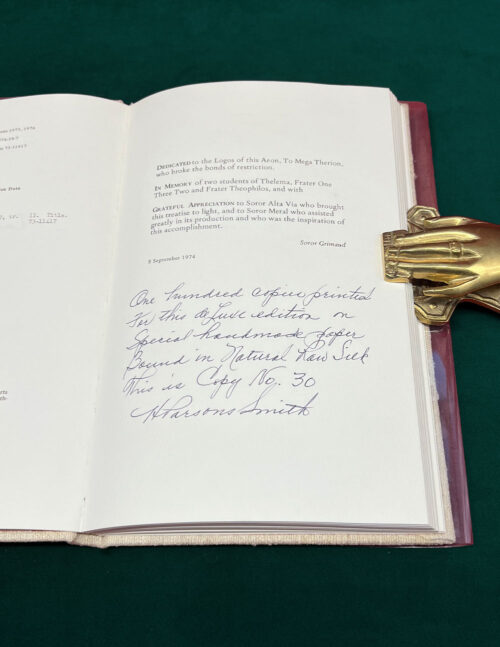 1974
Data
II. Title.
DEDICATED to the Logos of this Aeon, To Mega Therion,
who broke the bonds of restriction.
IN MEMORY of two students of Thelema, Frater One
Three Two and Frater Theophilos, and with
GRATEFUL APPRECIATION to Soror Alta Via who brought
this treatise to light, and to Soror Meral who assisted
greatly in its production and who was the inspiration of
this accomplishment.
Soror Grimaud
8 September 1974
One hundred copies printed
For this deluxe edition on
Special handmade paper
Bound in Natural Raw Silk
This is Copy No. 30
H Parsons Smith